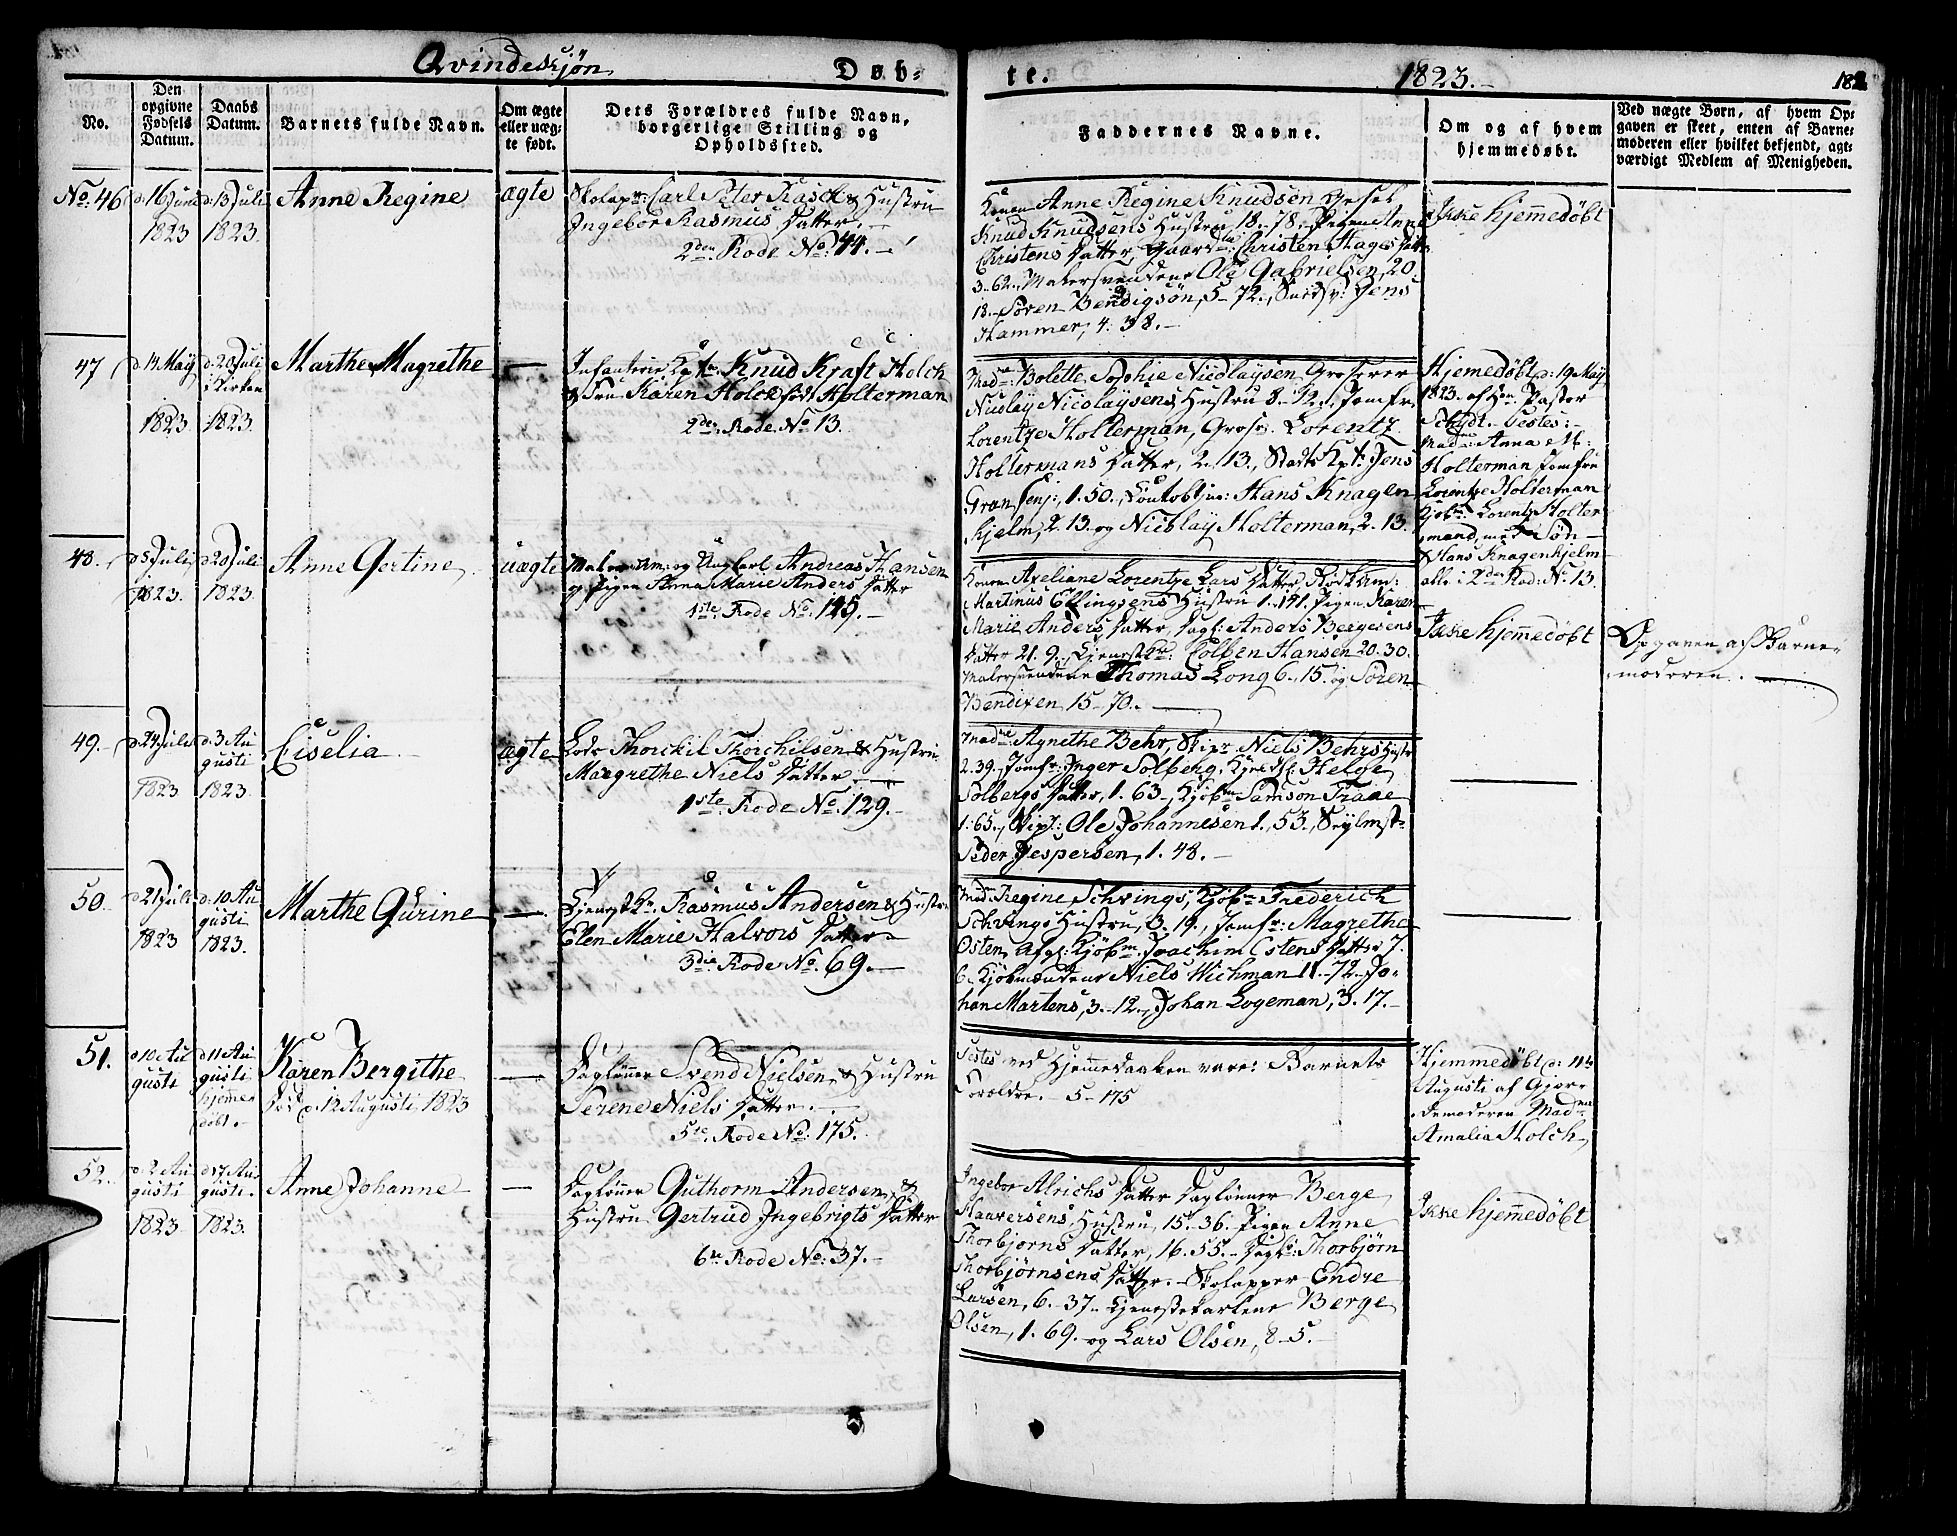 Qvindeskjøn
Døb-
te.
1823.-
No.
Den opgivne Fødsels Datum.
Daabs Datum.
Barnets fulde Navn.
Om ægte eller uæg- te født.
Dets Forældres fulde Navn, borgerlige Stilling og Opholdssted.
Faddernes Navne.
Om og af hvem hjemmedøbt.
Ved uægte Børn, af hvem Op- gaven er skeet, enten af Barne- moderen eller hvilket bekjendt, agt- værdigt Medlem af Menigheden.
No. 46
d. 16 Juni 1823
d. 13 Juli 1823.
Anne Regine
ægte
Carl Peter Rasch & Hustru
Ingebor Rasmus Datter.
2den Rode No. 44.-
Konen Anne Regine Knudsen
Knud Knudsens Hustru, 18.-78. Pigen Anne
Christens Datter, Christen Hages
3-62., Malersvendene Ole Gabrielsen, 20.
18.- Sören Bendigsön, 5-72., Jens
Hammer, 4: 38.-
Ikke hjemmedöbt
47
d. 14 May 1823
d. 20 Juli i Kirken 1823.
Marthe Magrethe
Infanterie Knud Kraft Holck
& Fru Karen Holck født Holterman
2den Rode No 13.
Madme Bolette Sophie Nicolaysen, Grosserer
Nicolay Nicolaysens Hustru 8.-12., Jomfr.
Lorentze Holterman, Gross. Lorentz
Holtermans Datter, 2.-13., Stadts Kpt: Jens
Gran Senj:, 1.50., Hans Knagen-
hjelm, 2.13. og Nicolay Holterman, 2-13.
Hjemedöbt d: 19 May
1823. af Hr. Pastor
Testes:-
Madme Anna M:
Holterman Jomfrue
Lorentze Holterman
Kjöbm: Lorentz Holter-
mand, med Sön
Hans Knagenhjelm
alle i 2den Rod: No. 13.
48.-
d. 5 Juli, 1823.
d. 20 Juli 1823.
Anne Gertine
uægte
Carl Andreas Hansen
og Pigen Anna Marie Anders Datter
1ste Rode No. 125.-
Konen Axeliane Lorentze Lars Datter,
Martinus Ellingsens Hustru 1.-141. Pigen Karen
Marie Anders Datter, Dagl: Anders Bergesens
Datter 21. 9., Colben Hansen 20.30.
Malersvendene Thomas Long 6.,15. og Sören
Bendixen 15-70.-
Ikke hjemmedöbt
Opgaven af Barne-
moderen.
49.-
d. 24 Juli 1823
d. 3 Au- gusti 1823.
Ciselia
ægte
Lods Thorckil Thorchilsen & Hustru
Magrethe Niels Datter
1ste Rode No. 129.-
Madme Agnethe Behr, Skipr Niels Behrs Hustr.
2.39., Jomfr: Inger Solberg, Helge
Solbergs Datter, 1.63-, Kjöbm Samson Traae
1:65., Ole Johannesen 1.,53.,
Peder Jespersen, 1.48.-
50.
d. 21 Juli 1823
d. 10 Au- gusti 1823.
Marthe Gurine
Rasmus Andersen & Hustru
Elen Marie Halvors Datter
3die Rode No. 69.-
Mad: Regine Schvings, Kjöbm Frederich
Schvings Hustru, 3.19., Jomfr: Magrethe
Osten, Afg: Kjöbm. Joachim Ostens Datter 7.
6., Kjöbmændene Niels Wichman 11.-72. Jo-
han Martens, 3.-12., Johan Logeman, 3.17.-
51.
d. 10 Au- gusti
d. 11 Au- gusti hjemme- döbt.-
Karen Bergithe
Död d. 12 Augusti 1823
Daglönner Svend Nielsen & Hustru
Serene Niels Datter.
5te Rode No. 175.
Testes ved Hjemmedaaben vare: Barnets
Forældre.- 5-175
Hjemmedöbt d: 11te
Augusti af Gjor-
demoderen Mad
Amalia Holch.
52.
d. 2 Au- gusti 1823
d. 17 Au- gusti 1823.
Anne Johanne
Daglönner Guthorm Andersen &
Hustru Gertrud Ingebrigts Datter
6te Rode No: 37.-
Ingebor Alrichs Datter, Daglönner Berge
Hauversens Hustru, 15.-36. Pigen Anne
Thorbjorns Datter, 16.55.- Dagl: Thorbjörn
Thorbjörnsens Datter.- Endre
Larsen, 6.-37. Berge
Olsen, 1.69. og Lars Olsen, 8-5.-
Ikke hjemmedöbt